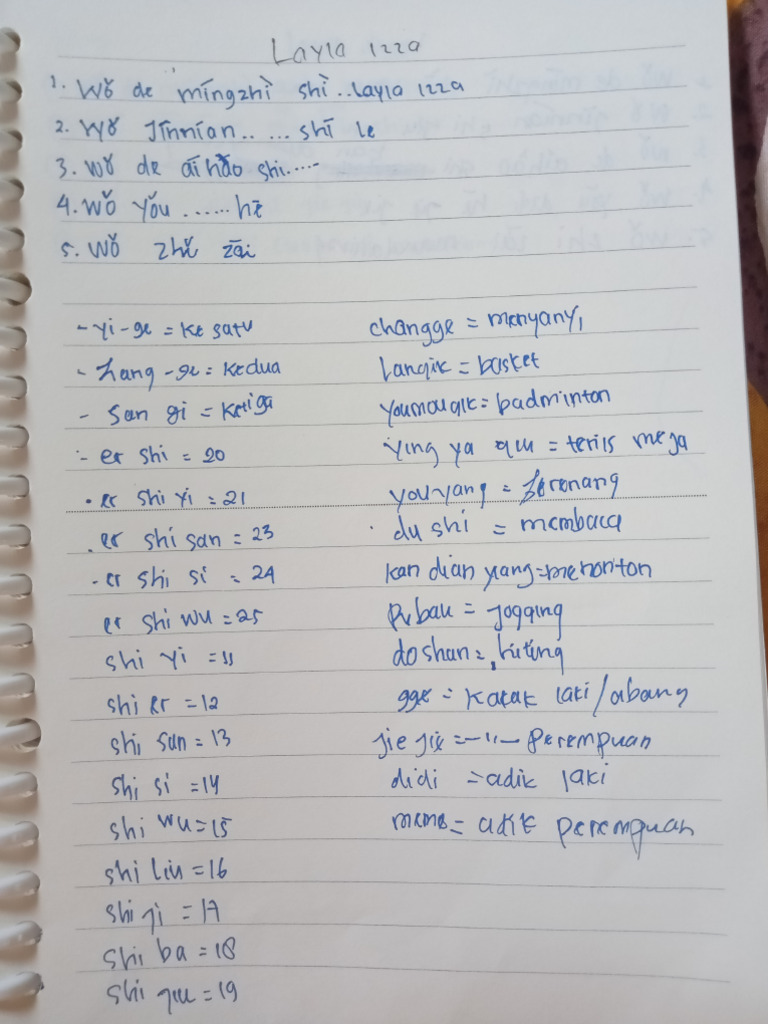 Layla Izza
1. Wǒ de míngzhì shì..layla izza
2. Wǒ Jīnnían.. ... shī le
3. wǒ de āihǎo shi.....
4. Wǒ yǒu ...... hē
5. Wǒ zhǔ zāi
- Yi-ge = ke satu
- Liang-ge = kedua
- San gi = ketiga
- er shi = 20
er shi yi = 21
er shi san = 23
- er shi si = 24
er shi wu = 25
shi yi = 11
shi er = 12
shi san = 13
shi si = 14
shi wu = 15
shi liu = 16
shi qi = 17
shi ba = 18
shi jiu = 19
changge = menyanyi
Lanqik = basket
youmouqik = badminton
Ying ya qiu = tenis meja
youyang = berenang
du shi = membaca
kan dian yiang = menonton
Pubau = jogging
do shan = hiking
gge = Kakak laki/abang
Jie Jie = -"- Perempuan
didi = adik laki
meme = adik perempuan